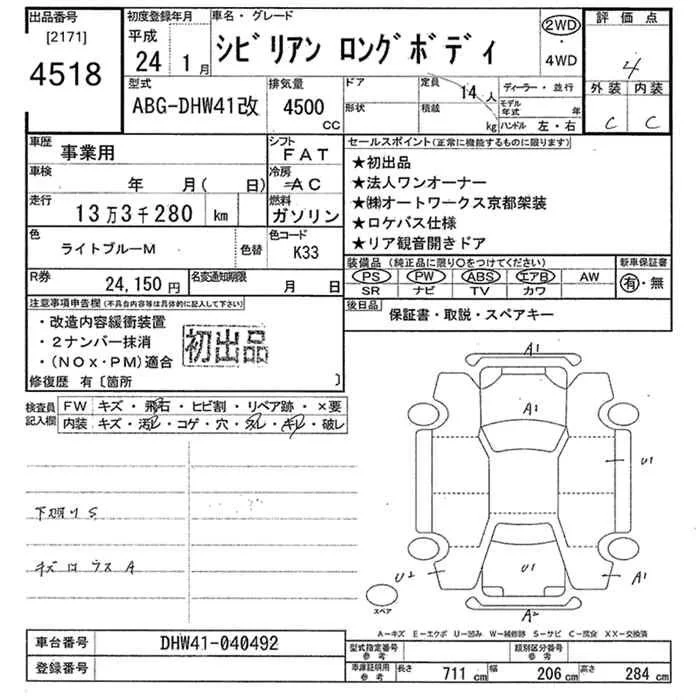 出品番号
[2171]
4518
初度登録年月
平成
24 1月
車名・グレード
シビリアン ロングボディ
2WD
・
4WD
評価点
4
外装 内装
C C
型式
ABG-DHW41改
排気量
4500
CC
ドア
形状
定員
14人
積載
kg
ディーラー・並行
モデル年式 年
ハンドル 左・右
車歴 事業用
シフト
FAT
車検 年 月( 日)
冷房
AC
走行 13万3千280 km
燃料
ガソリン
色
ライトブルーM
色替
色コード
K33
R券 24,150円
名変通知期限
月 日
セールスポイント(正常に機能するものに限ります)
★初出品
★法人ワンオーナー
★㈱オートワークス京都架装
★ロケバス仕様
★リア観音開きドア
装備品(純正品に限り○をつけてください)
PS PW ABS エアB AW
SR ナビ TV カワ
新車保証書
有・無
後日品
保証書・取説・スペアキー
注意事項申告欄(不具合内容等は具体的に記入して下さい)
・改造内容緩衝装置
・2ナンバー抹消
・(NOx・PM)適合
初出品
修復歴 有〔箇所 〕
検査員記入欄
FW キズ・飛石・ヒビ割・リペア跡・×要
内装 キズ・汚れ・コゲ・穴・スレ・キレ・破レ
A1
A1
U1
U1
U2
A1
A2
スペア
A-キズ E-エクボ U-凹み W-補修跡 S-サビ C-腐食 XX-交換済
車台番号 DHW41-040492
登録番号
型式指定番号
参考
類別区分番号
参考
車庫証明用
参考
長さ 711cm 幅 206cm 高さ 284cm